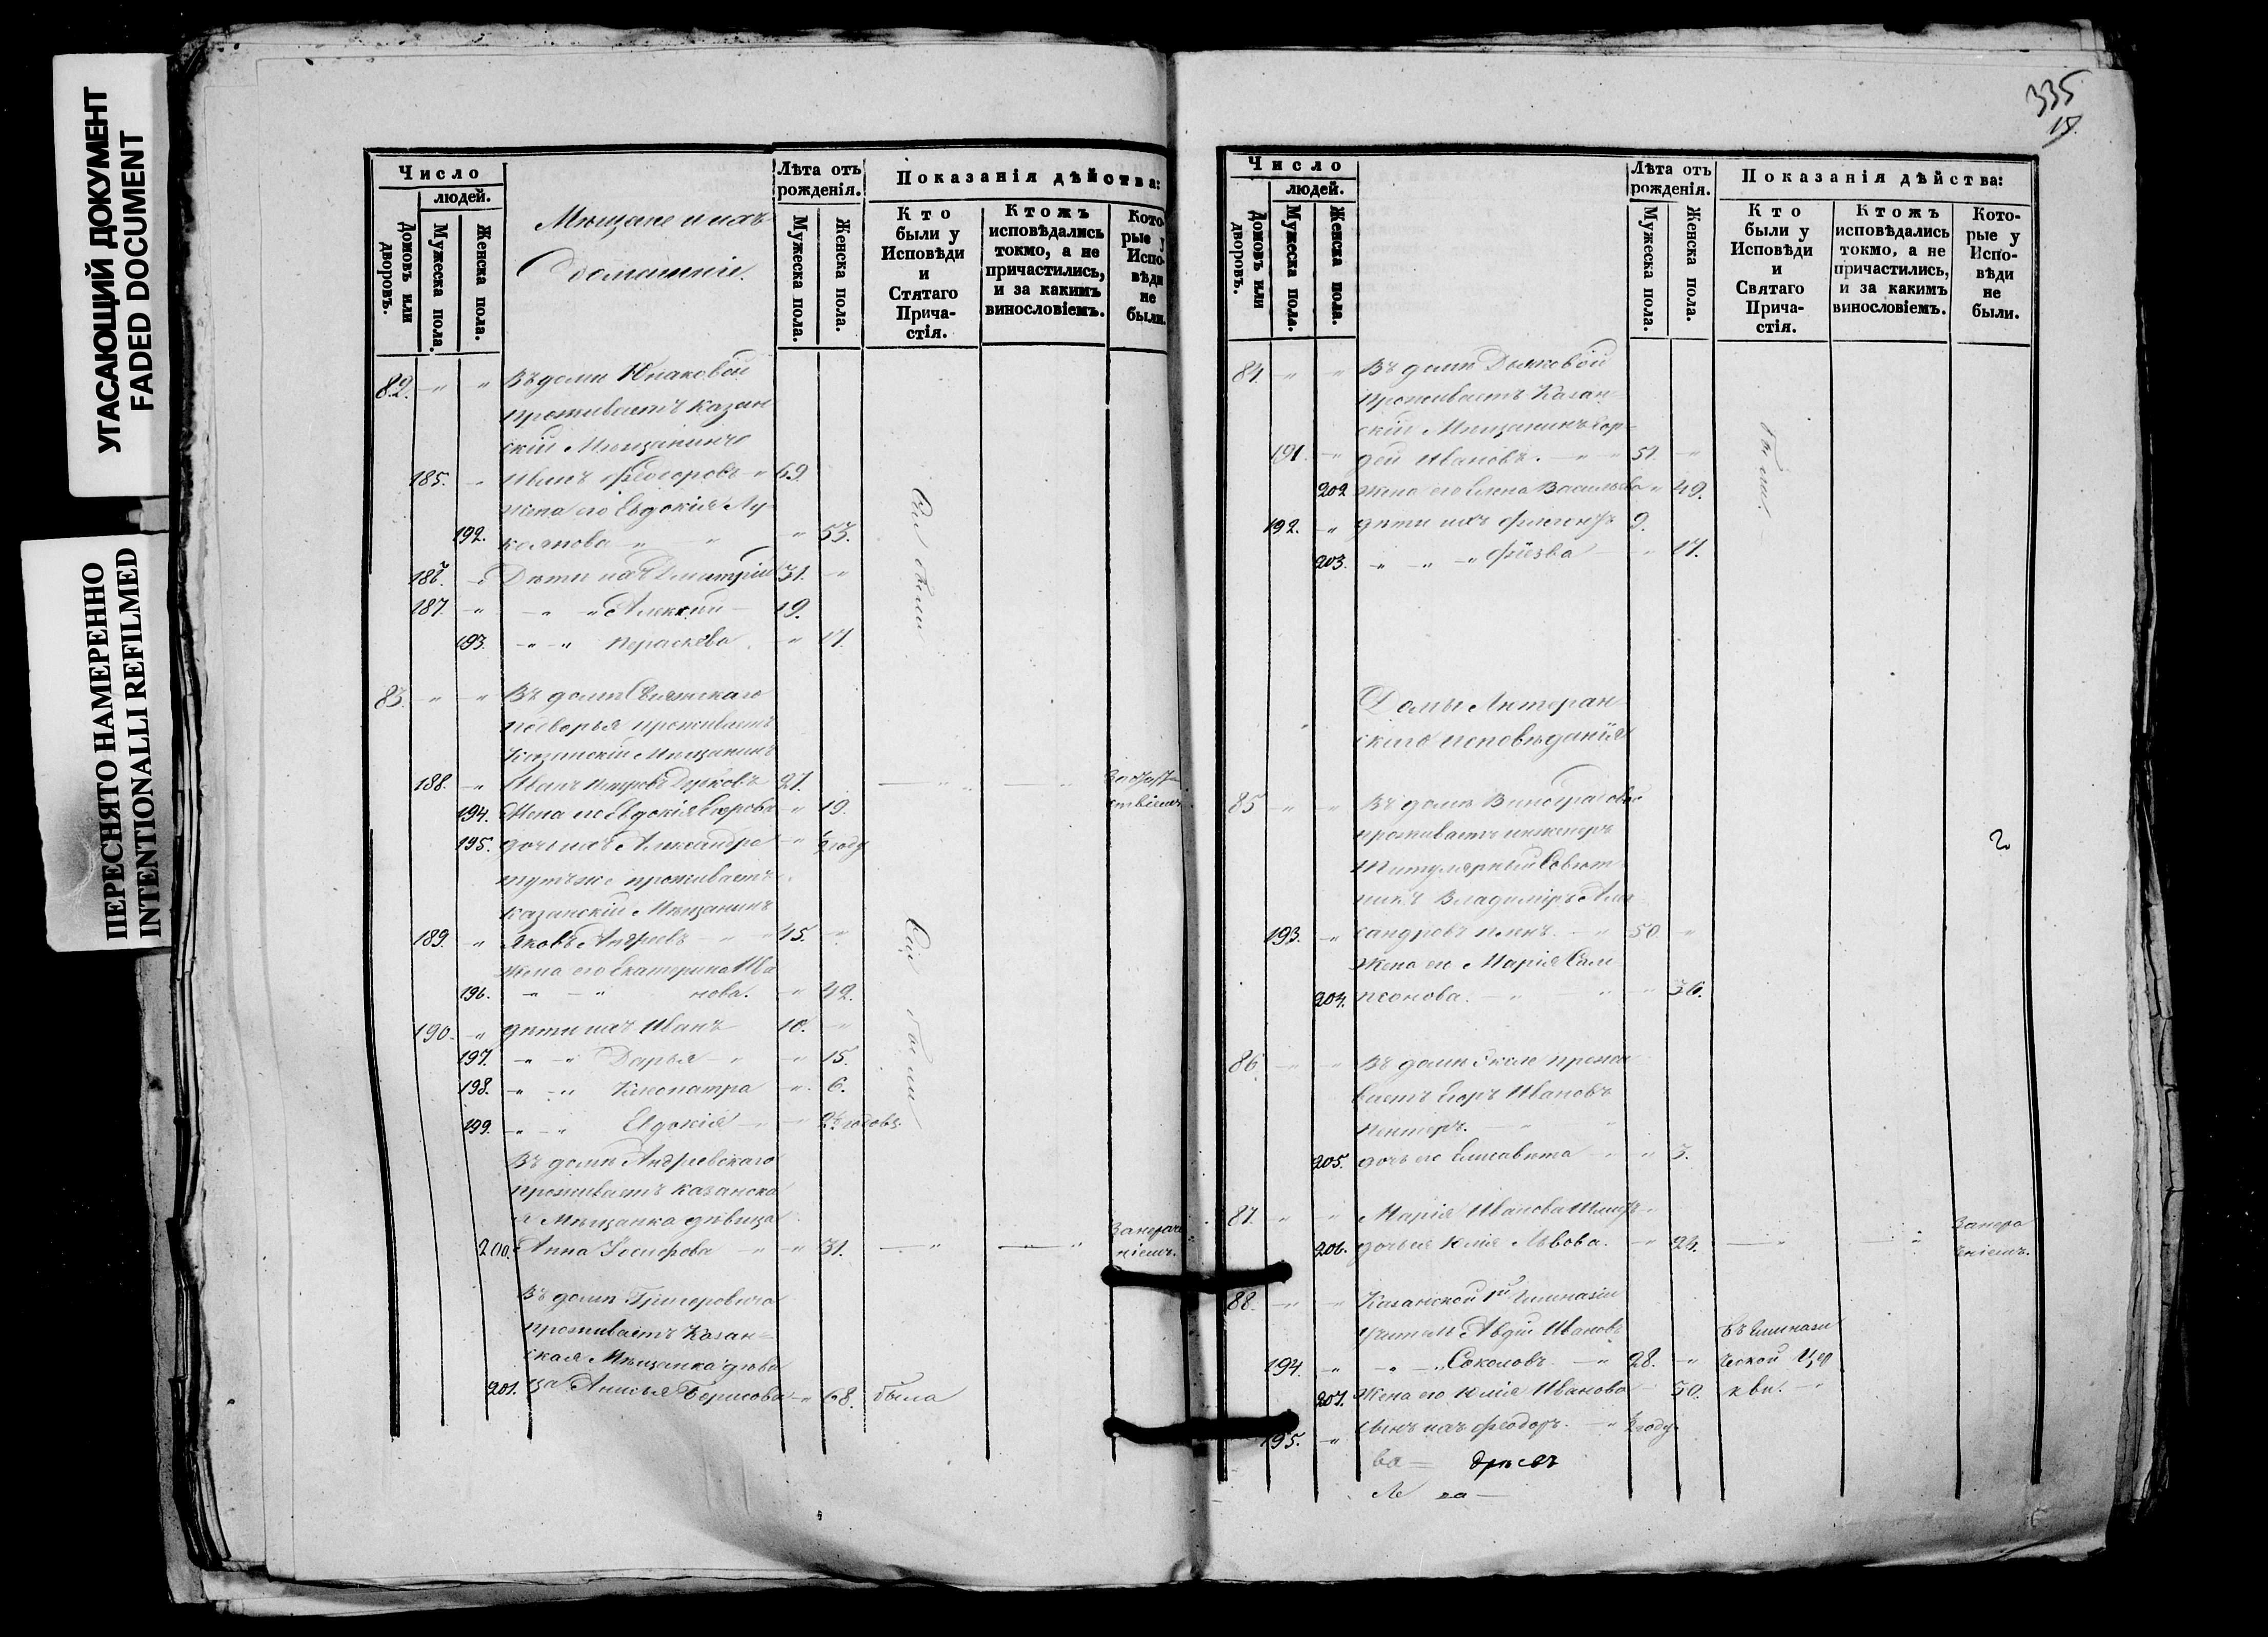 УГАСАЮЩИЙ ДОКУМЕНТ
FADED DOCUMENT
ПЕРЕСНЯТО НАМЕРЕННО
INTENTIONALLI REFILMED
Число
людей.
Домовъ или дворовъ.
Мужеска пола.
Женска пола.
Мещане и ихъ
домашніе.
Лѣта отъ рожденія.
Мужеска пола.
Женска пола.
Показанія дѣйства:
Кто были у Исповѣди и Стятаго Прича-стія.
Ктожъ исповѣдались токмо, а не причастились, и за какимъ винословіемъ.
Кото-рые у Испо-вѣди не были.
82. Въ доме Юнаковой
проживаетъ Казан
скій Мещанинъ
185. Иванъ Феодоровъ 69.
Жена его Евдокія Лу
192. кіянова 53.
186. Дети ихъ Димитрій 31.
187. Алексий 19.
193. Параскева 17.
Вси были
83. Въ доме Свіяжскаго
подворья проживаетъ
Казанскій Мещанинъ
188. Иванъ Петровъ 27.
194. Жена его Евдокія Егорова 19.
195. дочь ихъ Александра ½ году
тутъ же проживаетъ
казанскій Мещанинъ
189. Яковъ Андреевъ 45.
Жена его Екатерина Ива
196. нова. 42.
190. дети ихъ Иванъ 10.
197. Дарья 15.
198. Клеопатра 6.
199. Евдокія 2½ годовъ
Вси были
Въ доме Андреевскаго
проживаетъ казанска
я Мещанка девица
200. Анна Іосифова 31.
Въ доме Григоровича
проживаетъ Казан=
ская Мещанка деви
201. ца Анисья Борисова 68. была
335
Число
людей.
Домовъ или дворовъ.
Мужеска пола.
Женска пола.
Лѣта отъ рожденія.
Мужеска пола.
Женска пола.
Показанія дѣйства:
Кто были у Исповѣди и Святаго Прича-стія.
Ктожъ исповѣдались токмо, а не причастились, и за какимъ винословіемъ.
Кото-рые у Испо-вѣди не были.
84. Въ доме Дьяковой
проживаетъ Казан=
скій Мещанинъ Гор=
191. дей Ивановъ. 51.
202. Жена его Елена Васильева 49.
192. дети ихъ 9.
203. 17.
были.
Домы Лютеран
скаго исповеданія
85 Въ доме Виноградовой
проживаетъ инженеръ
Титулярный Совет
никъ Владимиръ Алек
193. сандровъ 50.
Жена его Марія Сам
204. псонова. 36.
2
86. Въ доме прожи
ваетъ Егоръ Ивановъ
205. дочь его Елисавета 3.
87. Марія Иванова
206. дочь ея Юлія Львова. 24.
88. Казанской 1й Гимназіи
учитель Авдій Ивановъ
194. Соколовъ 28.
207. Жена его Юлія Иванова 30.
195. сынъ ихъ Феодоръ. ½ году
Въ Гимнази
ческой Цер
кви.